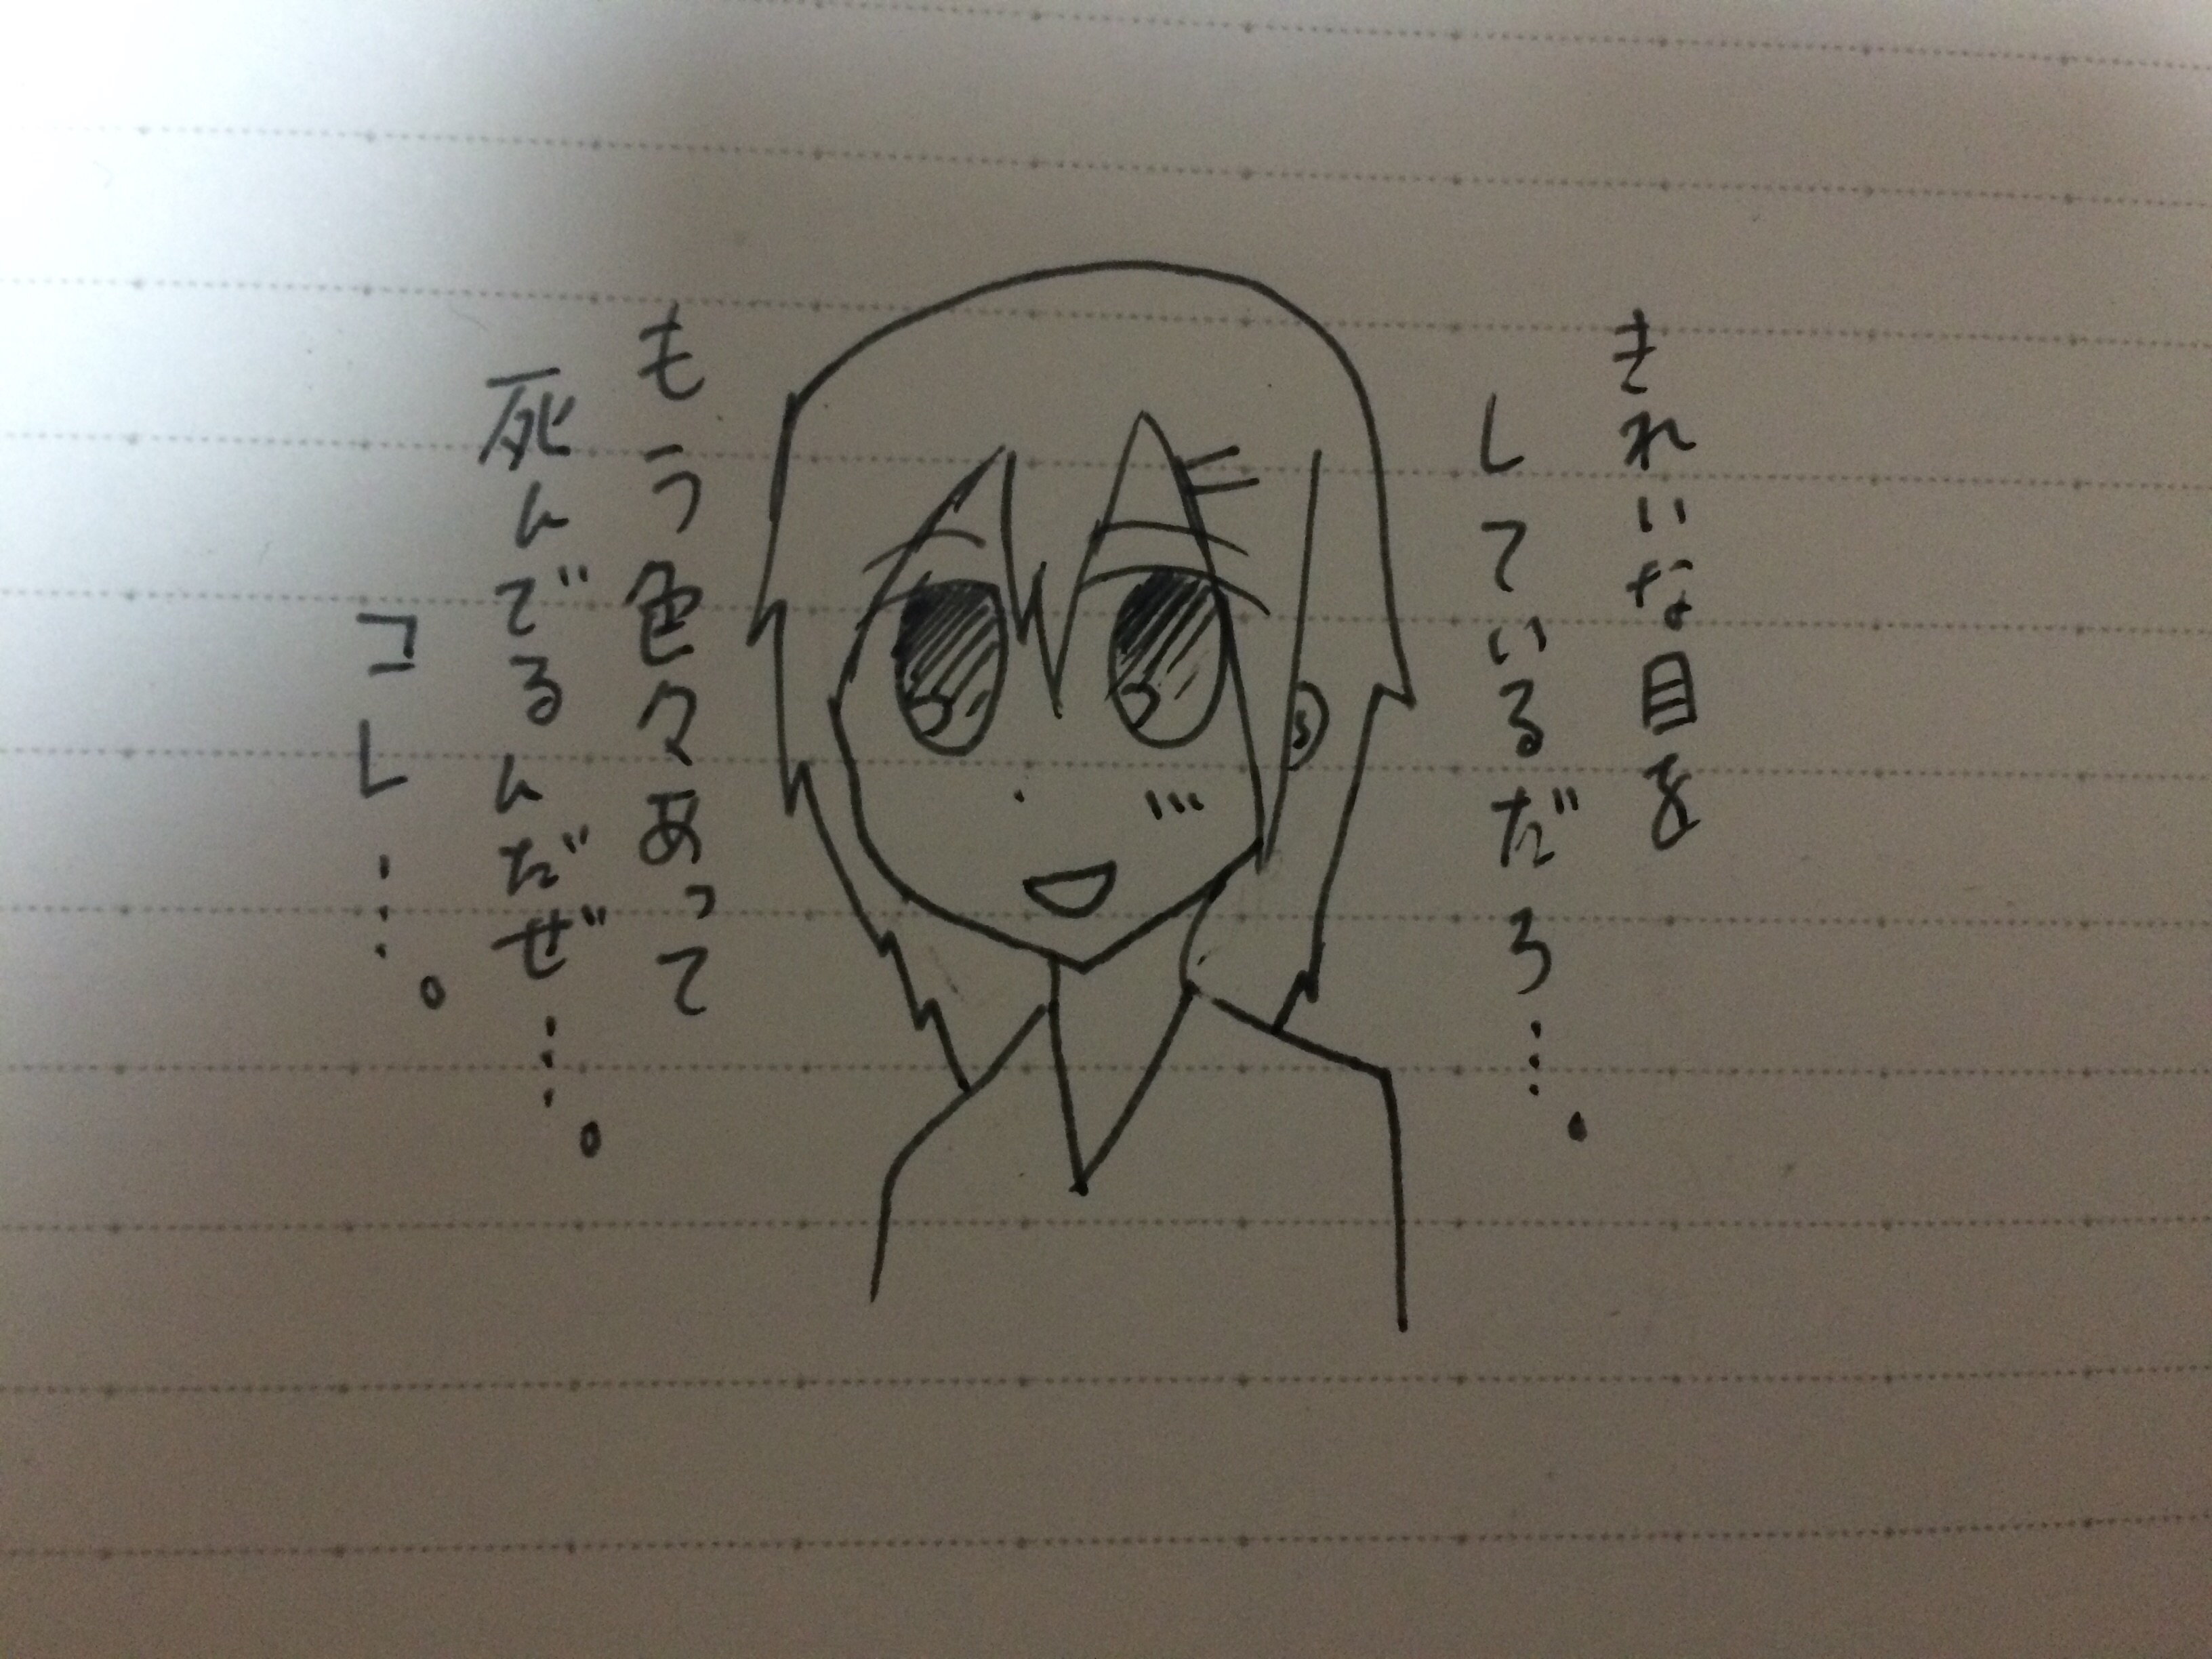 きれいな目を
しているだろ…。
もう色々あって
死んでるんだぜ…。
コレ…。